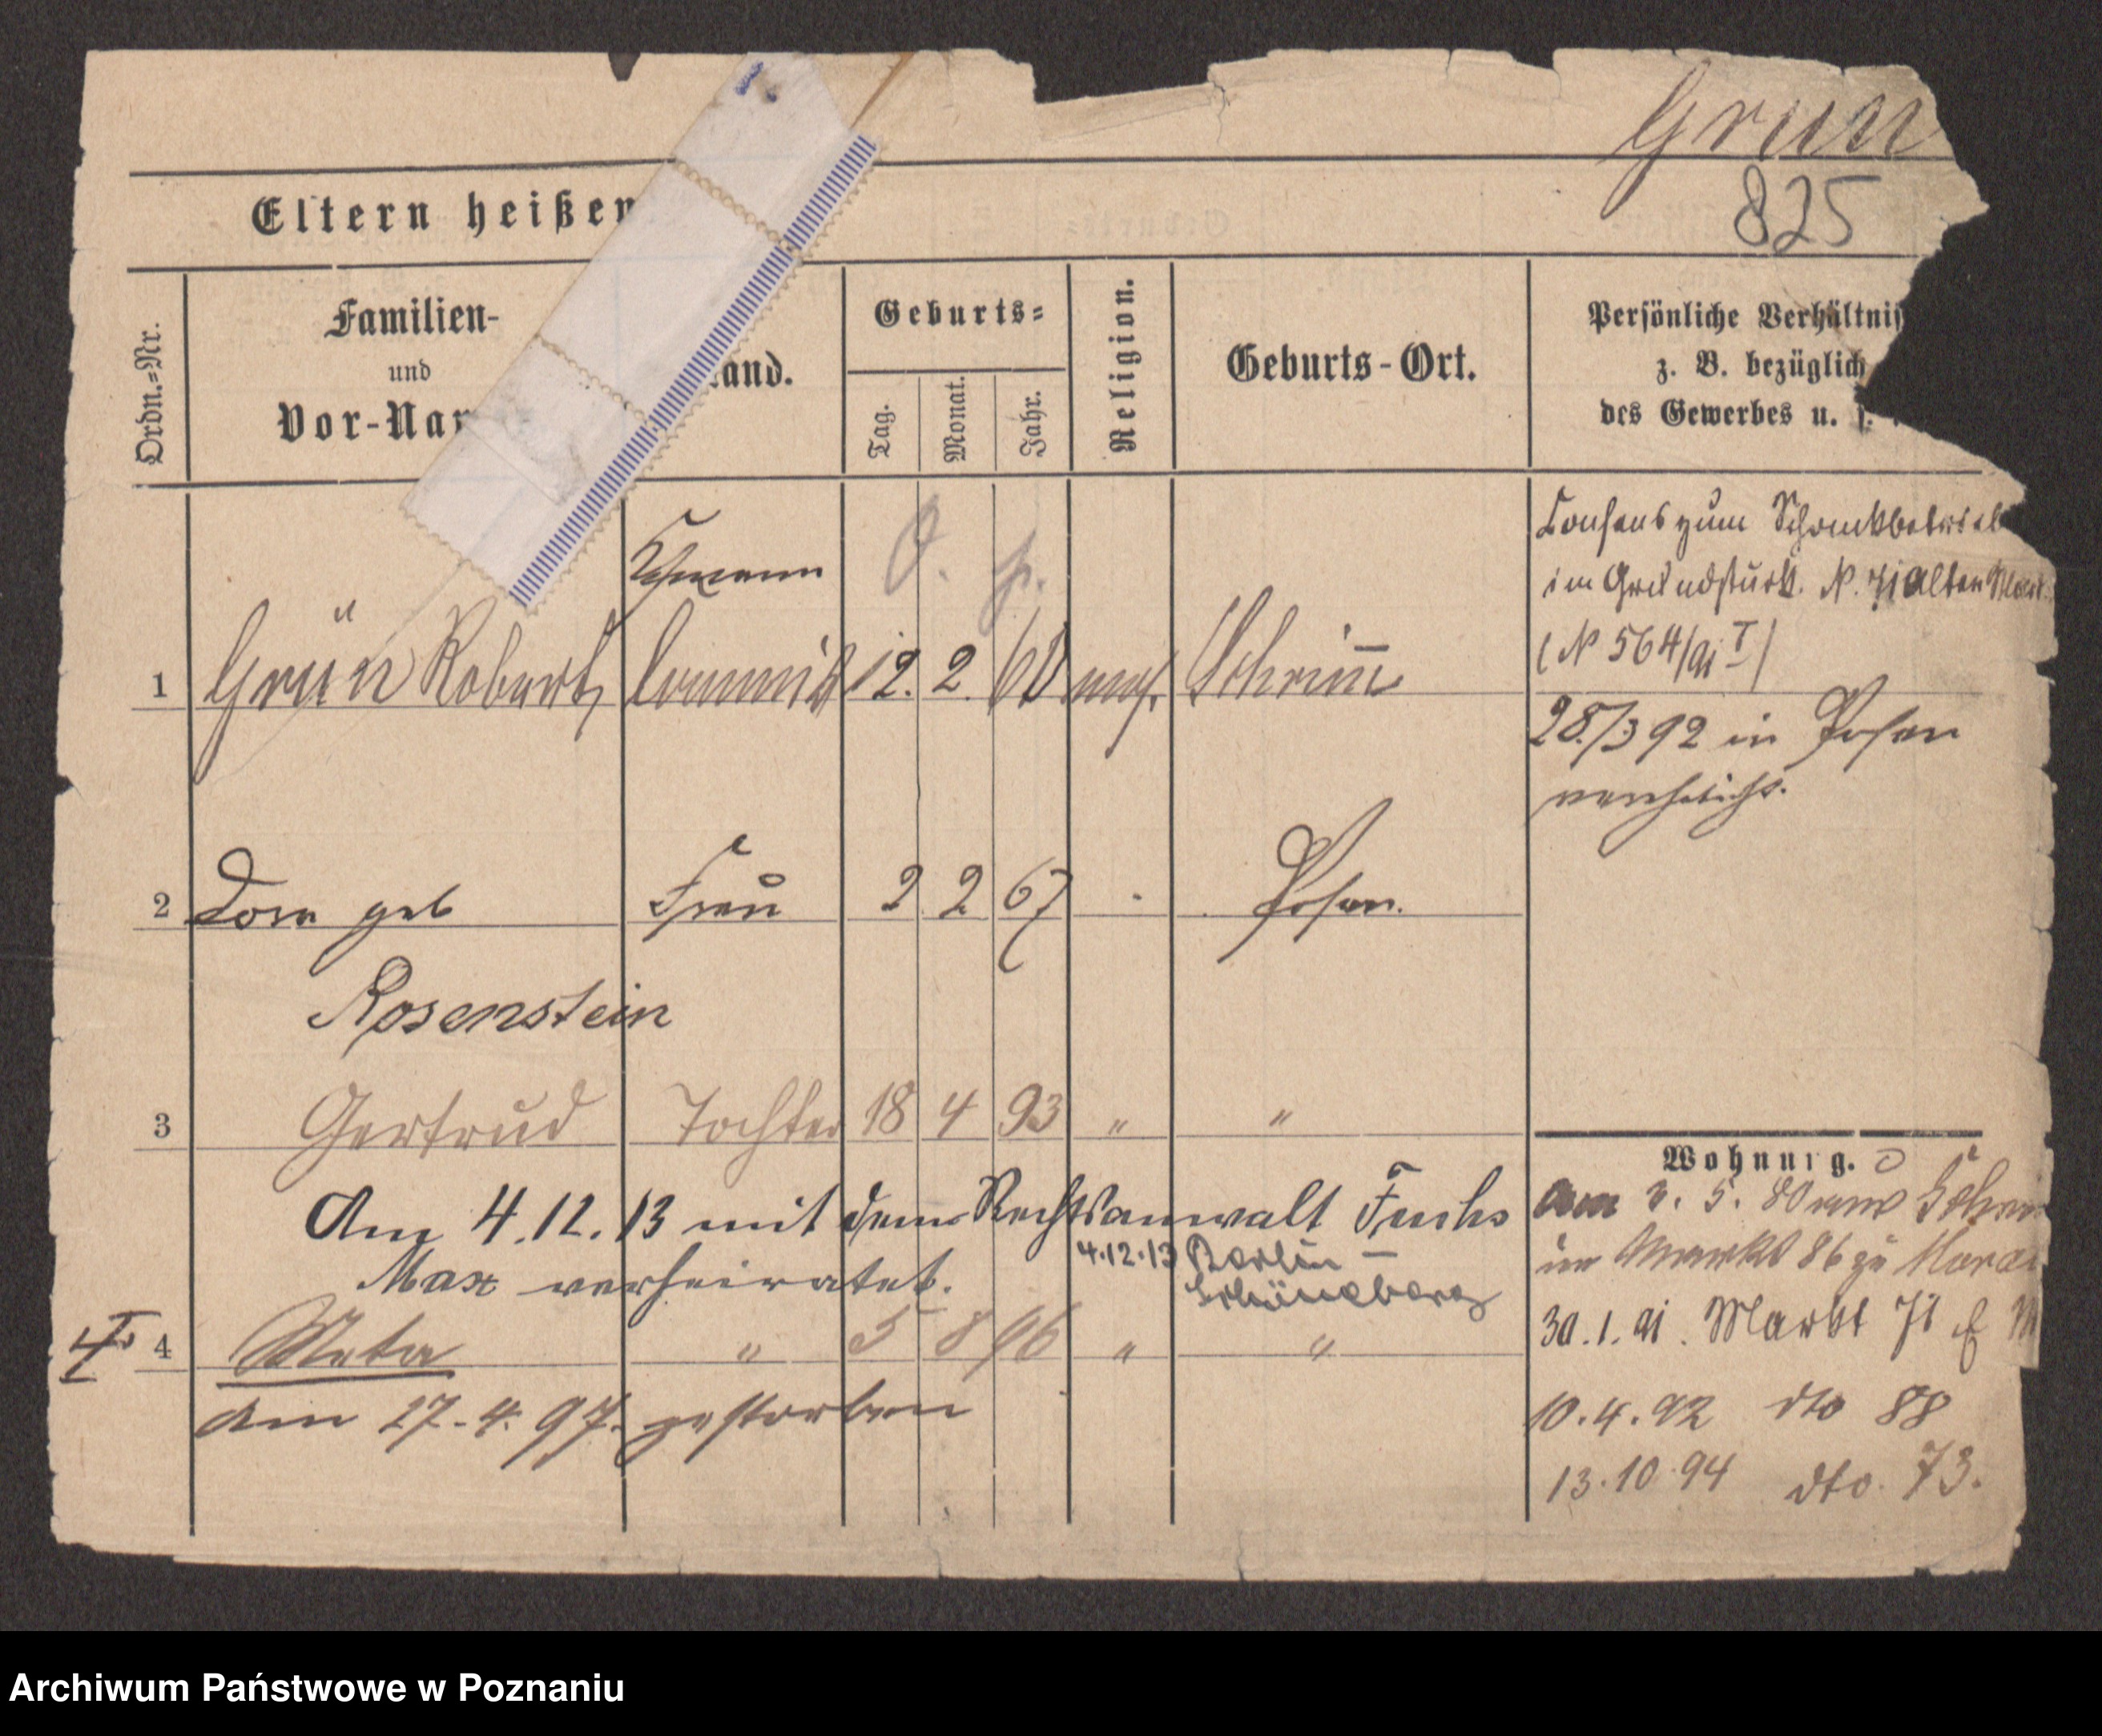 Grün
825
Eltern heißen
Ordn.-Nr.
Familien-
und
Vor-Nam
and.
Geburts-
Tag.
Monat.
Jahr.
Religion.
Geburts-Ort.
Persönliche Verhältnis
z. B. bezüglich
des Gewerbes u. s.
Consens zum Schankbetrieb
im Grundstück. N. 71 Alten Markt
(N 564/91 I)
28./3 92 in Posen
verehelicht.
1 Grün Robert, Commis 12. 2. 60 mos. Schrimm
2 Dora geb Frau 2 2 67 Posen.
Rosenstein
3 Gertrud Tochter 18 4 93 " "
Am 4.12.13 mit dem Rechtsanwalt Fuchs
4.12.13 Berlin -
Max verheiratet.
Schöneberg
4 Meta " 5 8 96 " "
am 27.4.97. gestorben
Wohnung.
Am 5. 80 aus Schrim
im Markt 86 zu
30.1.91. Markt 71
10.4.92 dto 88
13.10.94 dto. 73.
Archiwum Państwowe w Poznaniu